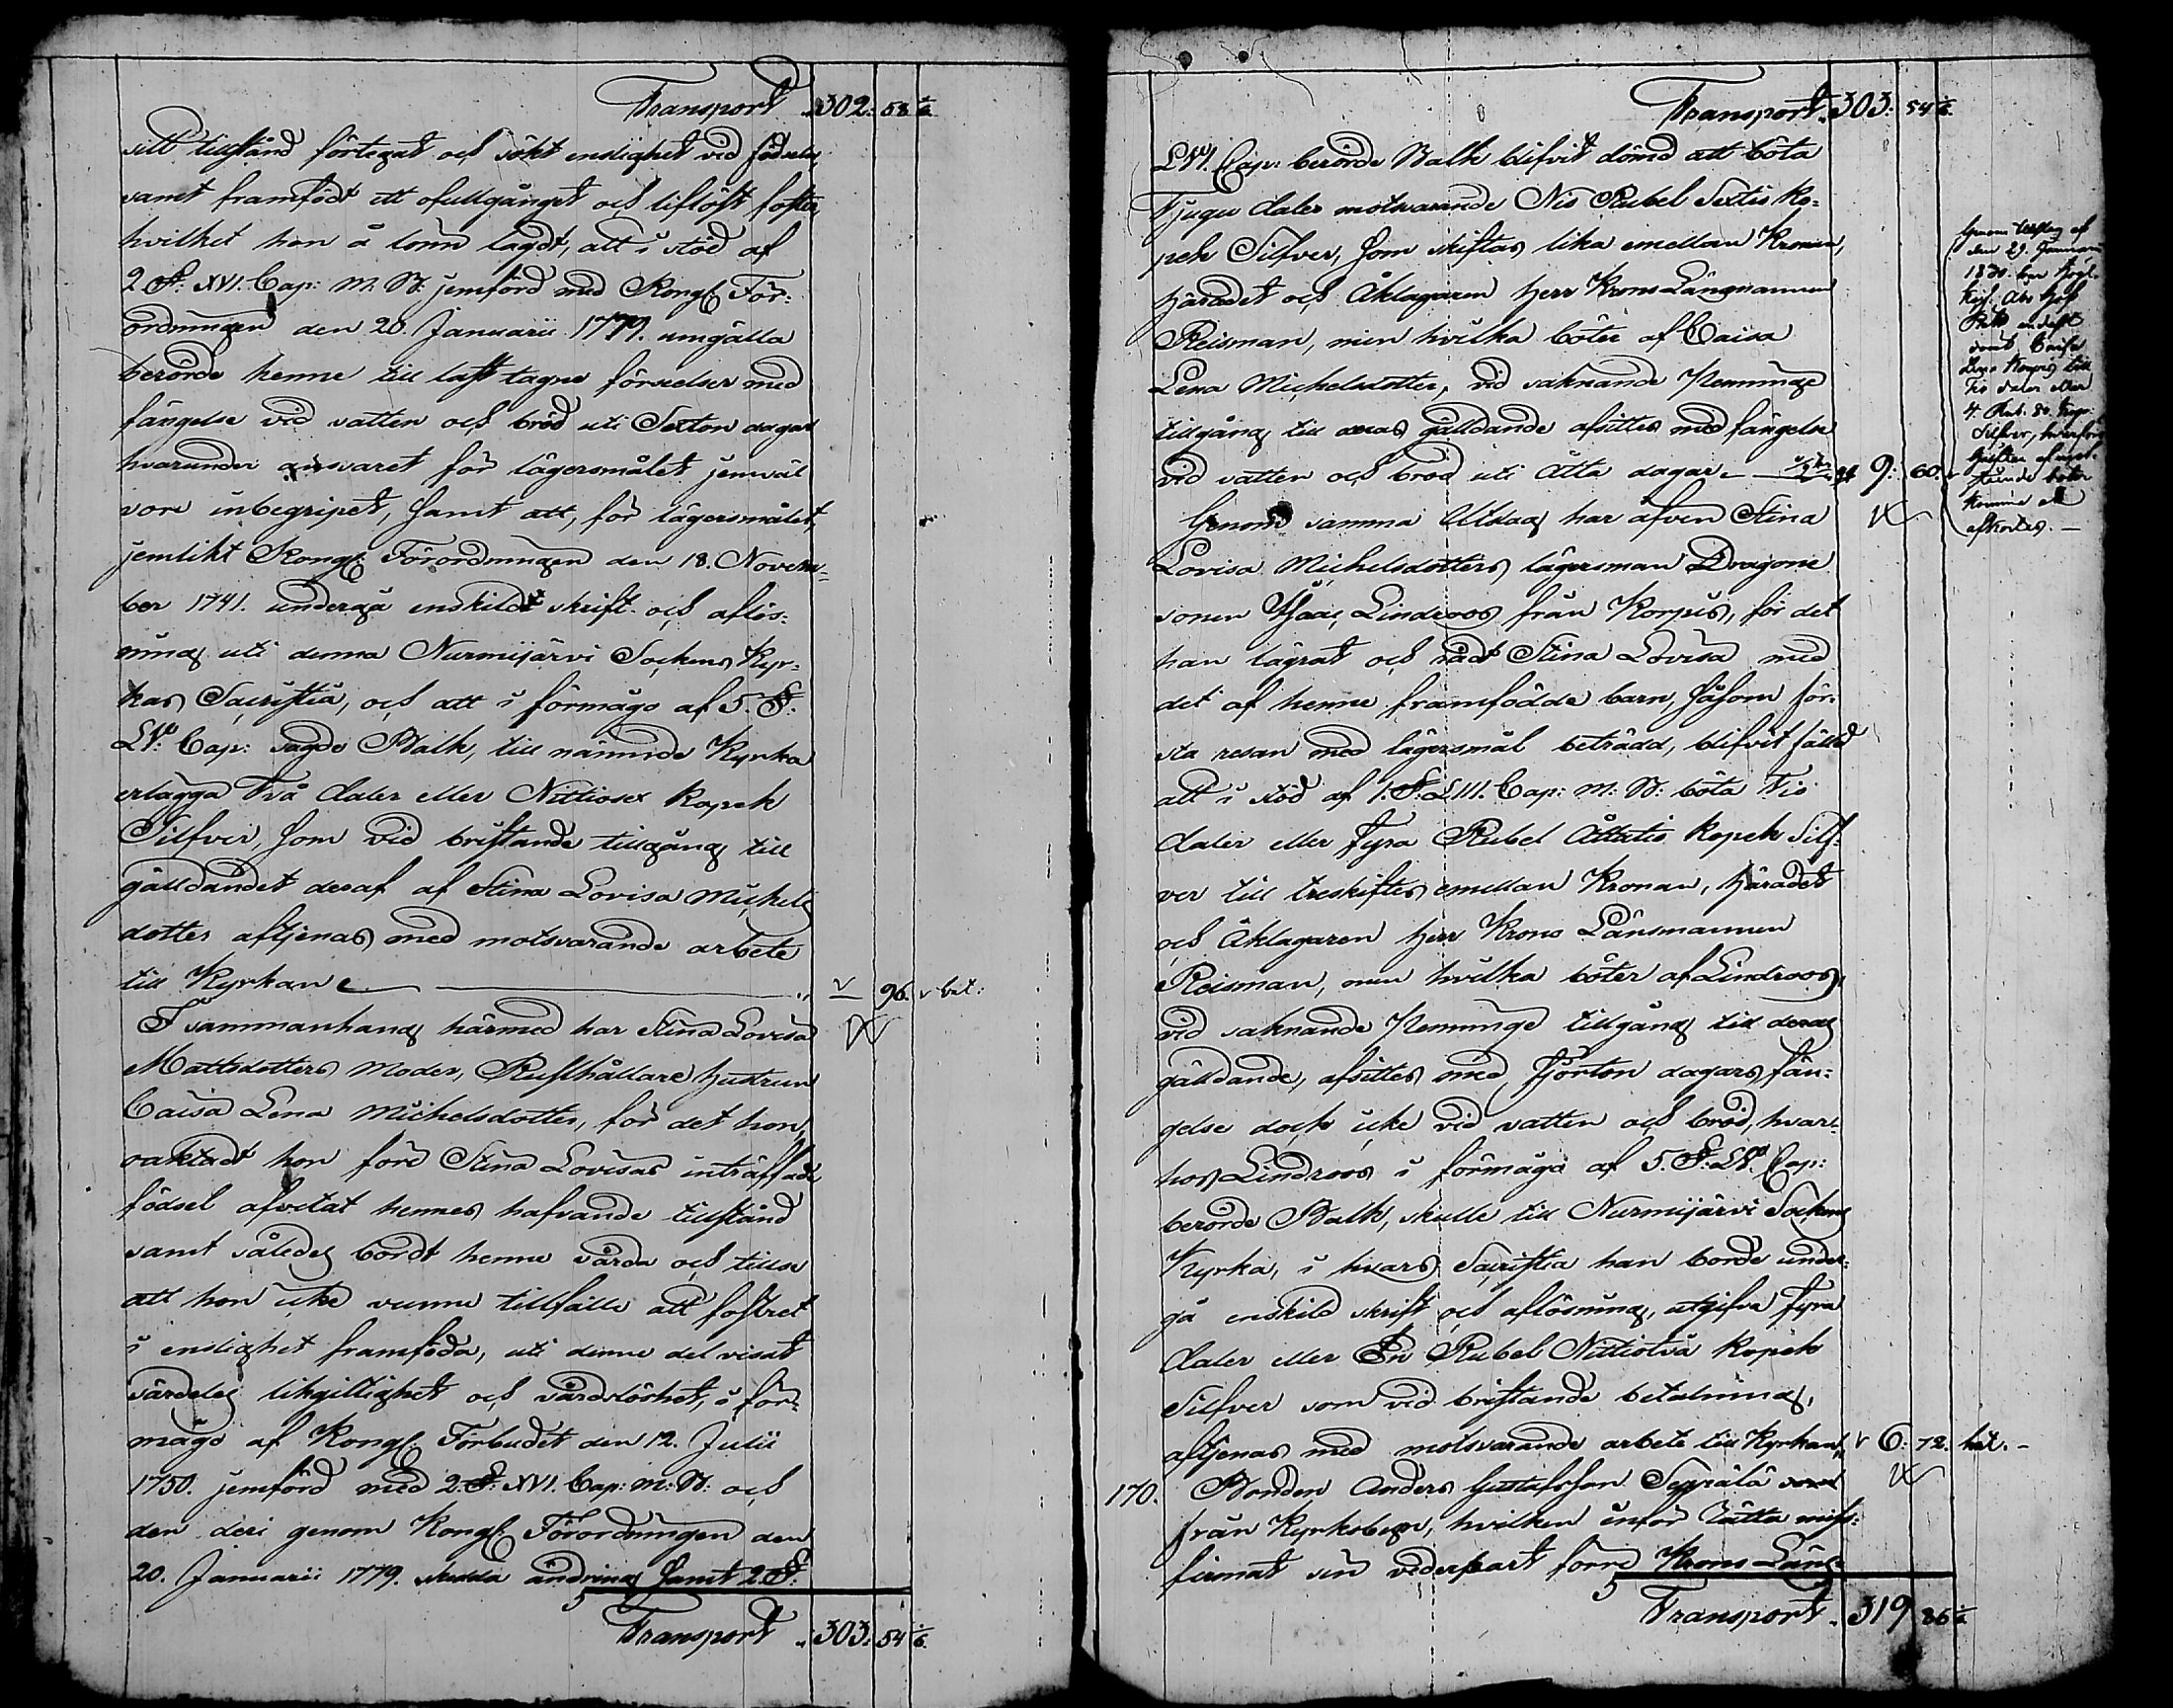 Transport 302: 58 1/6
sitt tillstånd förtegat och sökt enslighet vid födseln,
samt framfödt ett ofullgånget och liflöst foster,
hvilket hon å lönn lagdt, att i stöd af
2 §: XVI. Cap: M. B: jemförd med Kongl. För-
ordningen den 20. Januarii 1779. umgälla
berörde henne till last tagne förseelser med
fängelse vid vatten och bröd uti Sexton dagar
hvarunder ansvaret för lägersmålet jemväl
vore inbegripet, samt att, för lägersmålet,
jemlikt Kongl. Förordningen den 18. Novem-
ber 1741. undergå enskildt skrift och aflös-
ning uti denna Nurmijärvi Sockens Kyr-
kas Sacristia, och att i förmågo af 5. §:
LV. Cap: sagde Balk, till nämnde Kyrka
erlägga Två daler eller Nittiosex kopek
Silfver, som vid bristande tillgång till
gälldandet deraf af Stina Lovisa Michels
dotter aftjenas med motsvarande arbete
till Kyrkan 96. bet:
I sammanhang härmed har Stina Lovisa
Mattsdotters Moder, Rusthållare hustrun
Caisa Lena Michelsdotter, för det hon,
oaktadt hon före Stina Lovisas inträffade
födsel afvetat hennes hafvande tillstånd
samt således bordt henne vårda och tillse
att hon icke vunne tillfälle att fostret
i enslighet framföda, uti denne del visat
särdeles likgiltighet och vårdslöshet, i för-
mågo af Kongl. Förbudet den 12. Julii
1750. jemförd med 2 §: XVI. Cap: M: B: och
den deri genom Kongl. Förordningen den
20. Januarii 1779. skedda ändring samt 2 §:
Transport 303: 54 1/6
Transport 303: 54 1/6
LVI. Cap: berörde Balk blifvit dömd att böta
Tjugu daler motsvarande Nio Rubel Sextio ko-
pek Silfver, som skiftas lika emellan Kronan,
häradet och Åklagaren Herr Krono Länsmannen
Reisman, men hvilka böter af Caisa
Lena Michelsdotter, vid saknande Penninge
tillgång till deras gälldande afsittes med fängelse
vid vatten och bröd uti Åtta dagar 9: 60.
Genom Utslag af
den 29. Januarii
1830. har Kejs.
Åbo Hof
Rätt endast
dömt Caisa
Lena till
Tio daler eller
4. Rub. 80. kop.
Silfver, hvarföre
hälften af
böter
komme att
afkortas.
Genom samma Utslag har äfven Stina
Lovisa Michelsdotters lägersman Dragone
sonen Isaac Lindroos från Korpis, för det
han lägrat och rådt Stina Lovisa med
det af henne framfödde barn, såsom för-
sta resan med lägersmål beträdd, blifvit fälld
att i stöd af 1. §: LIII. Cap: M: B: böta Tio
daler eller fyra Rubel Åttatio kopek Silf-
ver till treskiftes emellan Kronan, häradet
och Åklagaren Herr Krono Länsmannen
Reisman, men hvilka böter af Lindroos,
vid saknande Penninge tillgång till deras
gälldande, afsittes med fjorton dagars fän-
gelse doch icke vid vatten och bröd, hvar-
hos Lindroos i förmågo af 5. §: LV. Cap:
berörde Balk, skulle till Nurmijärvi Sockens
Kyrka, i hvars Sacristia han borde under-
gå enskild skrift och aflösning, utgifva fyra
daler eller En Rubel Nittiotvå kopek
Silfver som vid bristande betalning,
aftjenas med motsvarande arbete till Kyrkan 6: 72. bet.
170. Bonden Anders Gustafsson Seppälä
från Kyrkoby, hvilken inför Rätta miss-
firmat sin vederpart förre Krono Läns-
Transport 319 86 1/6